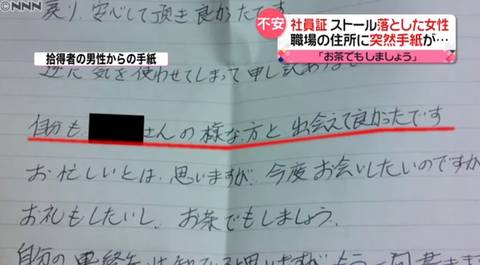 NNN
不安
社員証 ストール落とした女性
職場の住所に突然手紙が…
「お茶でもしましょう」
拾得者の男性からの手紙
戻り、安心して頂き良かったです
逆に気を使わせてしまって申し訳
自分も、さんの様な方と出会えて良かったです
お忙しいとは、思いますが、今度お会いしたいのですが
お礼もしたいし、お茶でもしましょう。
自分の連絡先は知っていると思いますが、もう一回書きます